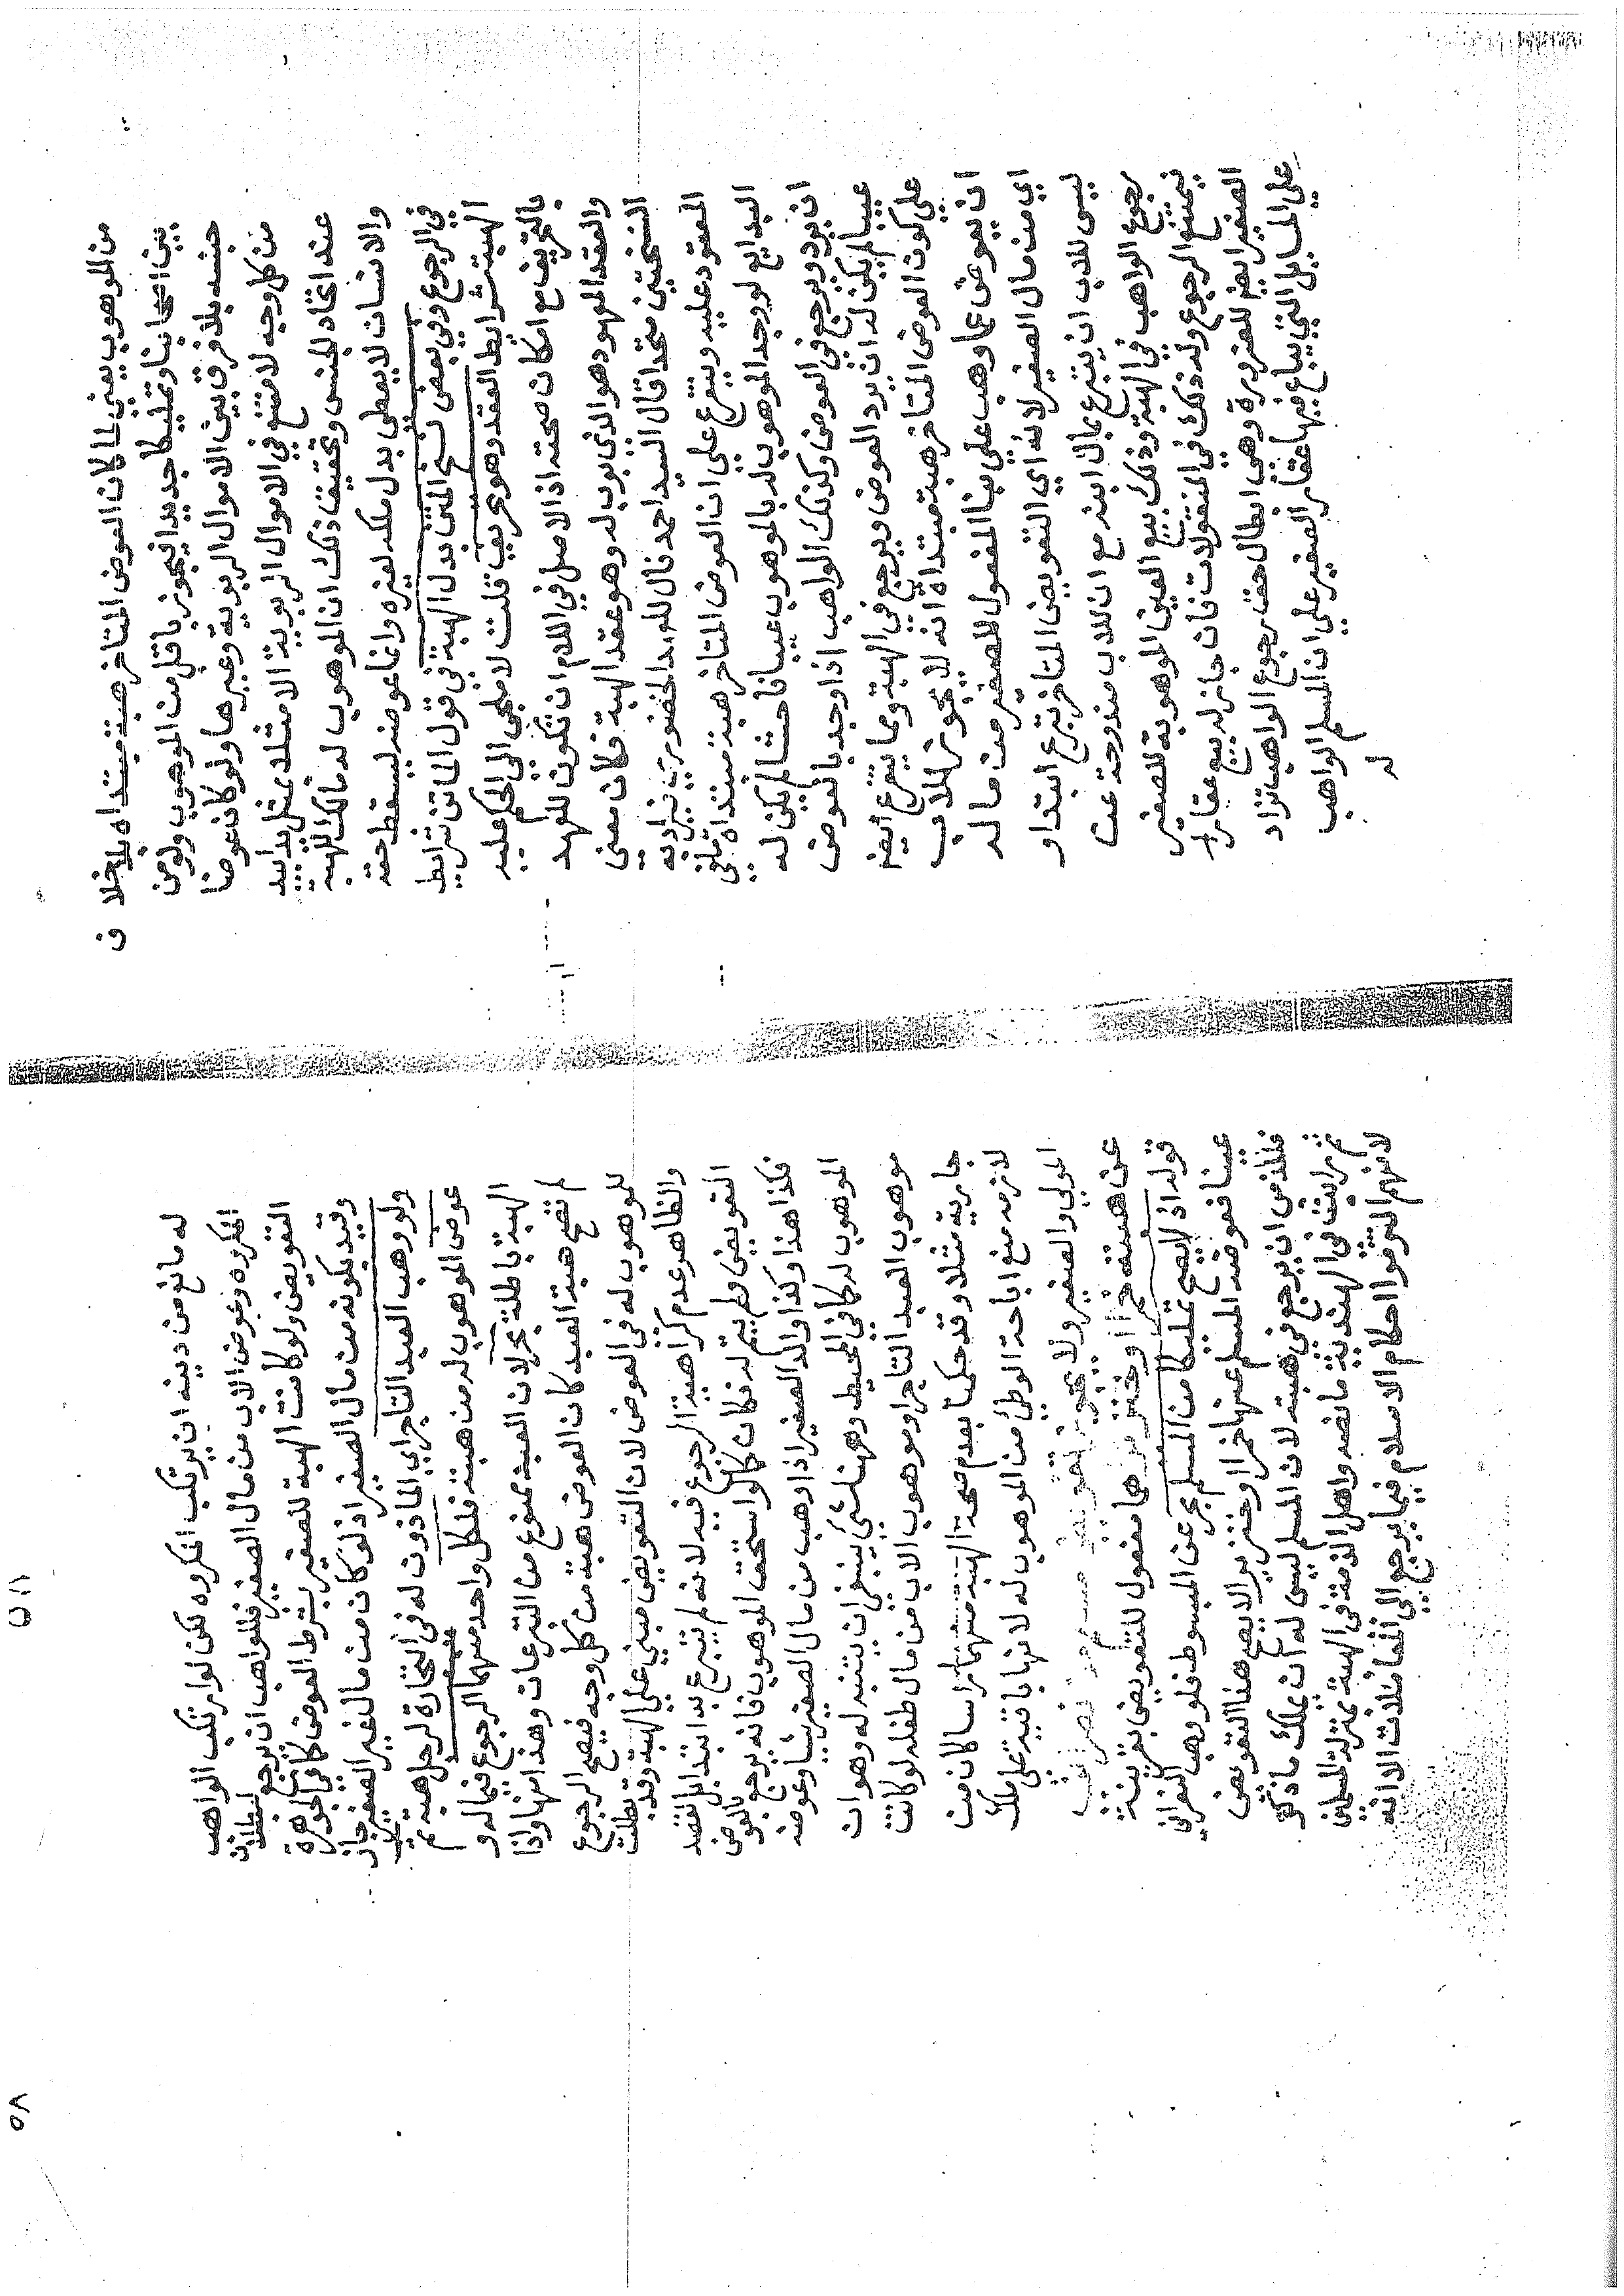 من الموهوب يعني لما كان العوض المتاخر هبة مبتداه بلاخلاف
جنسه بلا فرق بين الاموال الربوية وغيرها ولو كان عوضا
من كل وجه لامتنع في الاموال الربوية الا مثلا بمثل يدا بيد
عند اتحاد الجنس وتحقيق ذلك ان الموهوب له مالك للهبة
والانسان لا يعطي بدل ملكه لغيره وانما عوضه ليسقط حقه
في الرجوع وفي بعض نسخ المتن بدل الهبة في قول الماتن شرايط
الهبة شرايط العقد وهو تحريف قلت لا ملجي الى الحكم عليه
بالتحريف مع امكان صحته اذ الاصل في اللام ان تكون للعهد
والعقد المعهود هو الذي بوب له وهو عقد الهبة فكان معنى
النسختين متحدا قال السيد احمد قال
المعقود عليه ويتفرع على ان العوض المتاخر هبة مبتداة ما في
البدايع لو وجد الموهوب له بالموهوب عيبا فاحشا لم يكن له
ان يرد ويرجع في العوض وكذلك الواهب اذا وجد بالعوض
عيبا لم يكن له ان يرد العوض ويرجع في الهبة ومما يتفرع ايضا
على كون العوض المتاخر هبة مبتداة انه لا يجوز للاب
ان يعوض عما وهب على بنا المفعول للصغير من ماله
اي من مال الصغير لانه اي التعويض المتاخر تبرع ابتدا و
ليس للاب ان يتبرع بمال ابنه مع ان للاب مندوحة عن
رجوع الواهب في الهبة وذلك بيع العين الموهوبة للصغير
فيمتنع الرجوع وله ذلك في المنقولات فان جاز له بيع عقار
الصغير ايضا للضرورة وهي ابطال حق رجوع الواهب تزاد
على المسايل التي يباع فيها عقار الصغير على ان المسلم الواهب
له
له مانع من دينه ان يرتكب المكروه لكن لو ارتكب الواهب
المكروه وعوض الاب من مال الصغير فللواهب ان يرجع لبطلان
التعويض ولو كانت الهبة للصغير بشرط العوض كما في الجوهرة
وقيد بكونه من مال الصغير اذ لو كان من مال غير الصغير جاز
ولو وهب العبد التاجر اي الماذون له في التجارة لرجل هبة ثم
عوض الموهوب له من هبته فلكل واحد منهما الرجوع فيما له و
الهبة باطلة بحر لان العبد ممنوع من التبرعات وهذا منها واذا
لم تصح هبة العبد كان العوض هبة من كل وجه فيصح الرجوع
للموهوب له في العوض لان التعويض مبني على الهبة وقد بطلت
والظاهر عدم كراهية الرجوع فيه لانه لم يتبرع به ابتدا بل قصد
التعويض ولم يتم له فكان كما لو استحق الموهوب فانه يرجع بالعوض
فكذا هذا وكذا والد الصغير اذا وهب من مال الصغير شيا وعوضه
الموهوب له كما في المحيط وههنا شيء ينبغي ان يتنبه له وهو ان
موهوب العبد التاجر او موهوب الاب من مال طفله لو كانت
جارية مثلا وقد حكمنا بعدم صحة الهبة منهما راسا كان من
لازمه منع اباحة الوطئ من الموهوب له لانها باقية على ملك
المولى والصغير ولا يجوز تعويض مسلم من نصراني
عن هبته خمرا او خنزيرا هما مفعول للتعويض بقرينة
قوله اذ لا يصح تمليكا من المسلم بحر عن المبسوط فلو وهب النصراني
عينا فعوضه المسلم عنها خمرا او خنزيرا لا يصح هذا التعويض
فللذمي ان يرجع في هبته لان المسلم ليس له ان يملك ما ذكر
ثم رايت في الهندية ما نصه واهل الذمة في الهبة بمنزلة المسلمين
لانهم التزموا احكام الاسلام فيما يرجع الى المعاملات الا انه
٥٨